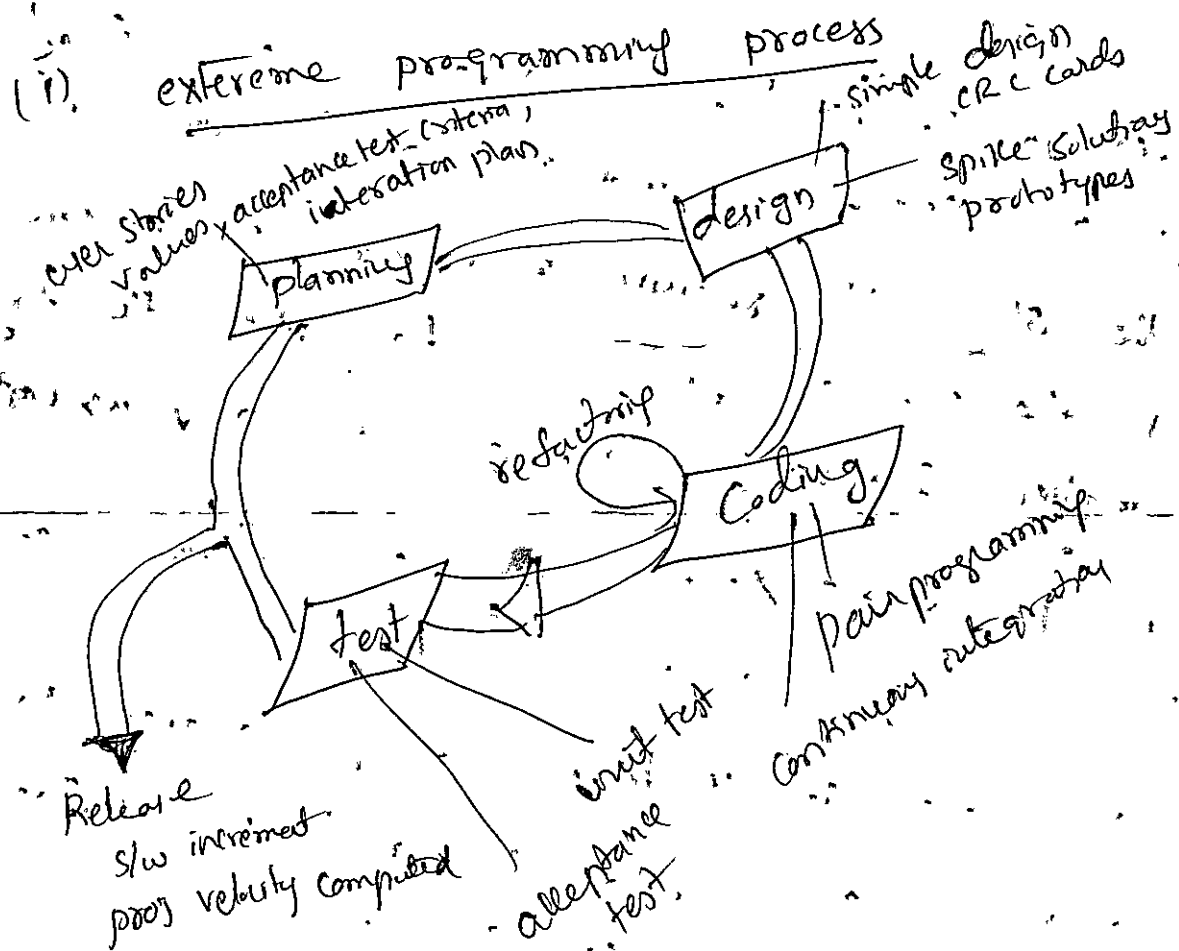 (i). extereme programming process
simple design
CRC cards
spike solutions
prototypes
user stories
values, acceptance test criteria,
interation plan.
planning
design
refactoring
Coding
pair programming
continuous integration
test
unit test
acceptance
test.
Release
s/w increment
proj velocity computed